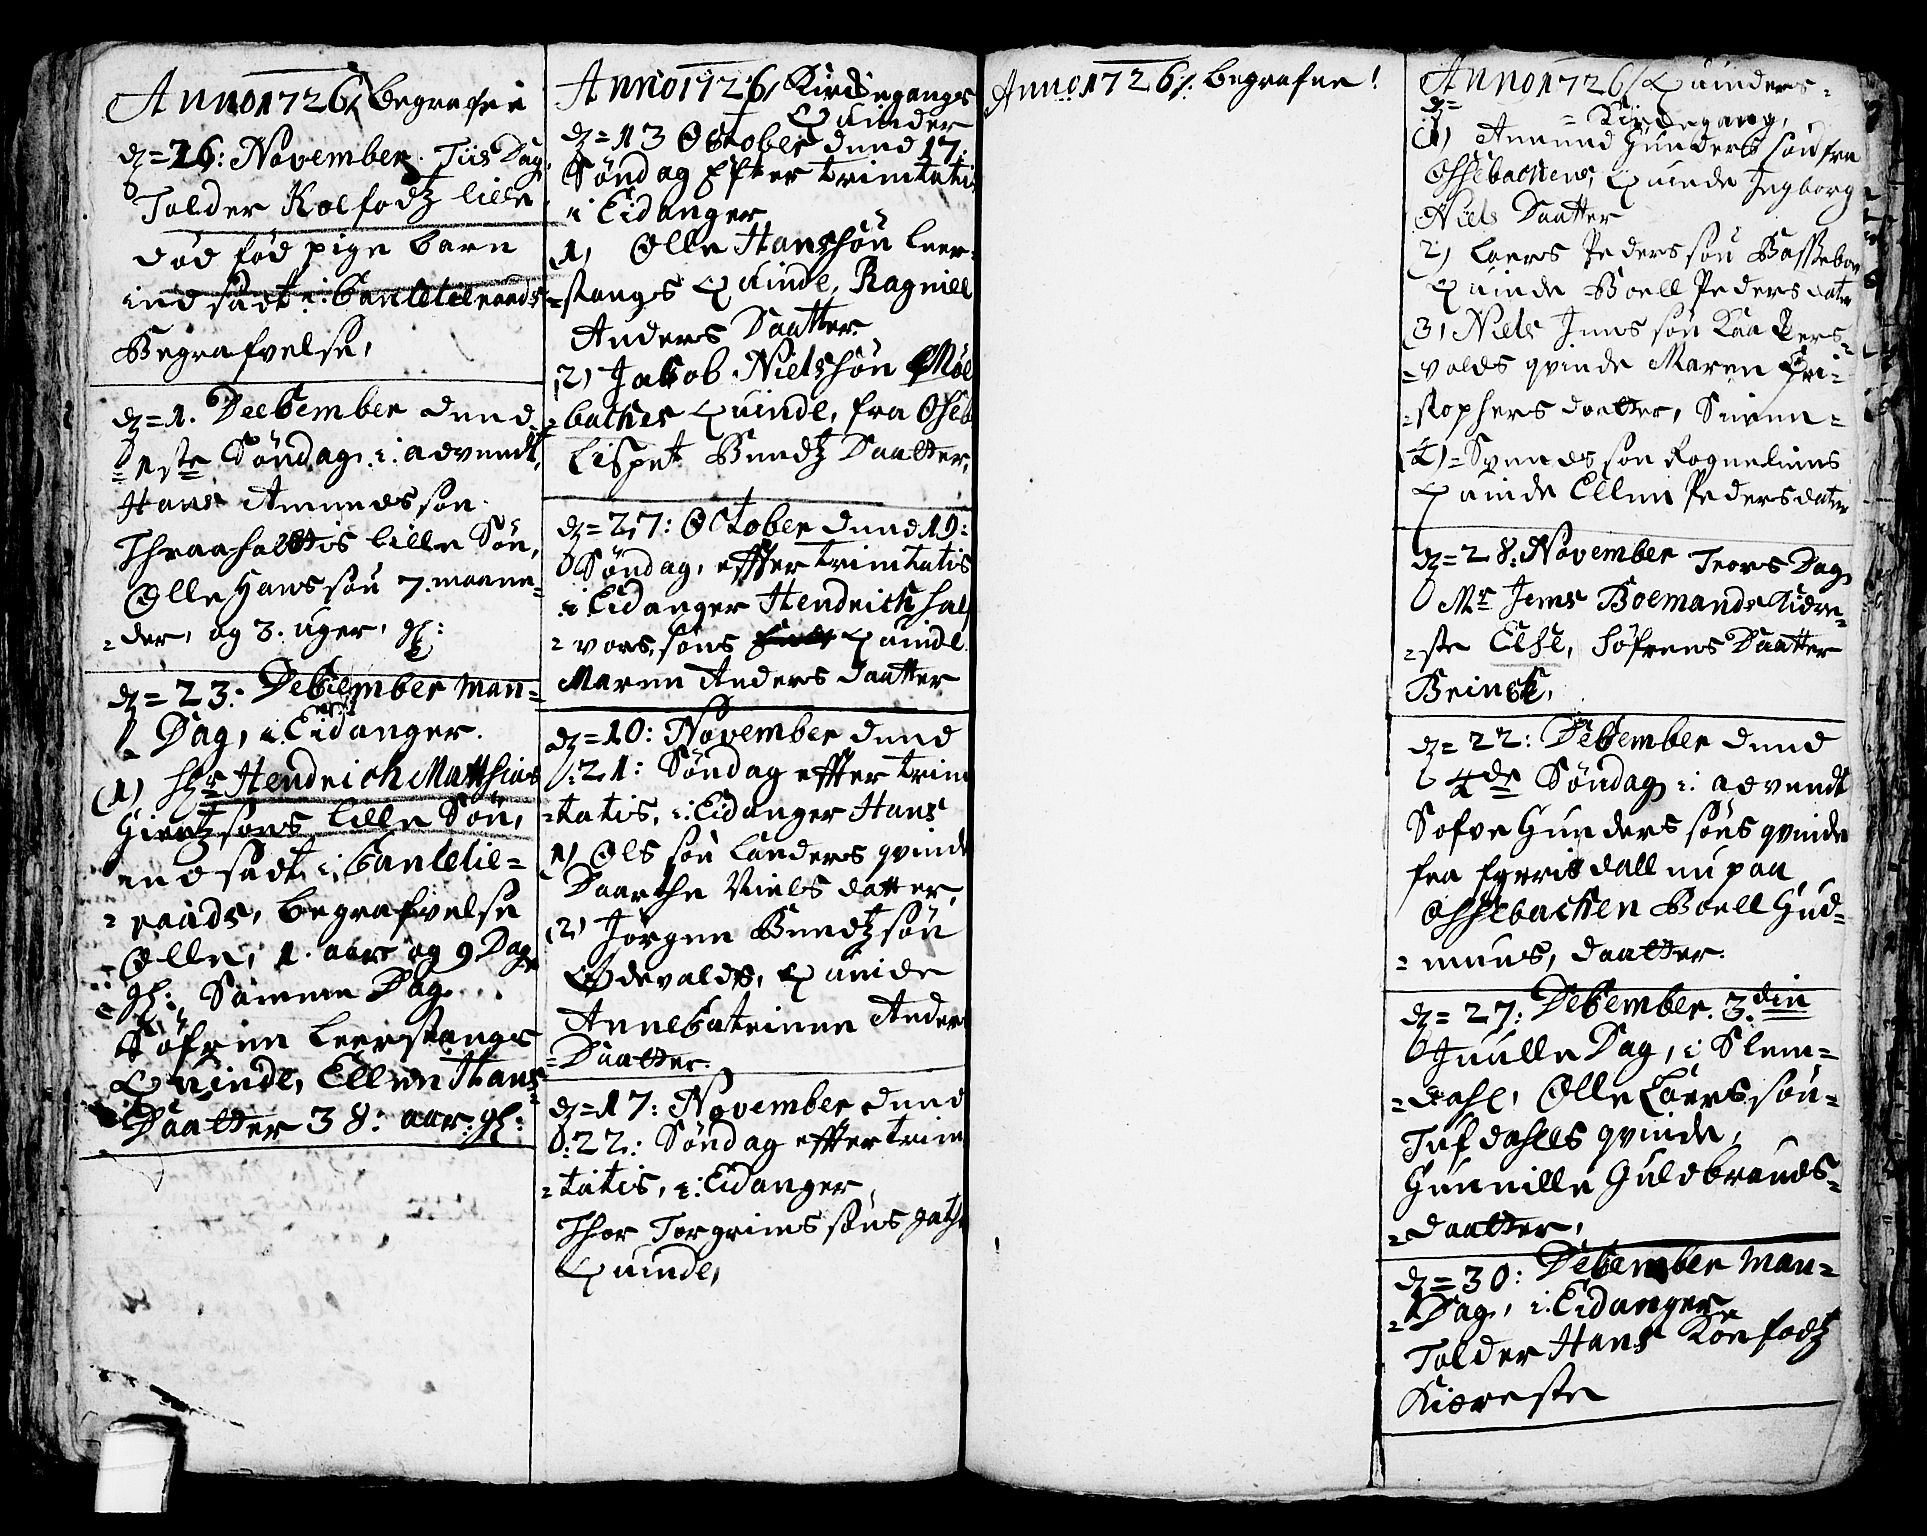 Anno 1726/ Begrafne
d. = 26: November. Tiis Dag,
Tolder Kolfodtz lille
død fød pige barn
ind sadt i Cancelieraads
Begrafvelse,
d. = 1. December dend
= 1ste Søndag i advendt,
Hans Amundssøn
Thraaholttis lille Søn,
Olle Hanssøn 7. maane-
= der, og 3. uger, gl:
d. = 23: December Man=
= Dag, i Eidanger.
(1) Hr Hendrich Matthias
Giertzsøns lille Søn,
ind sadt i Cancelie=
= raads, begrafvelse
Olle, 1. aar og 9 Dag
= gl: Samme Dag
Søfren Leerstangs
Quinde, Ellen Hans=
Daatter 38: aar: gl:
Anno 1726/ Kirchegangs
Quinder
d. = 13 October dend 17:
Søndag Efter trinitatis
i Eidanger
1) Olle Hanssøn Leer-
= stangs Quinde, Ragnill
Anders Daatter
2) Jakob Nielssøn Møl
= baches Quinde, fra Oseb
Lispet Bendtz Daatter,
d. = 27: October dend 19:
Søndag, effter trinitatis
i Eidanger Hendrich Hal
= vors, søns Quinde
Maren Anders daatter
d. = 10: November dend
21: Søndag effter trini
= tatis, i Eidanger Hans
1) Ols søn Landers qvinde
Daarthe Niels datter,
(2) Jørgen Bendtzsøn
Ødevalds, Quinde
Anne Catrinne Anders
= Daatter.
d. = 17: November dend
22: Søndag effter trini
= tatis, i Eidanger
Thor Torgrimssøns
Quinde,
Anno 1726/. Begrafne!
Anno 1726/ Quinders =
= Kirchegang,
(1) Amund Gunderssøn fra
Ossebachen, Quinde Ingborg
Niels Daatter
2) Laers Pederssøn Bassebo
Quinde Boell Pedersdater
3) Niels Jenssøn
= valds qvinde Maren Cri=
= stophers daatter,
(4) = Svendssøn
Quinde Ellen Pedersdater
d. = 28: November Tors Dag
Mr Jens Boemands Kiere=
= ste Else, Søfrens Daatter
Brinck,
d. = 22: December dend
4de Søndag i advendt
Sofve Gunderssøns qvinde
fra nu paa
Ossebachen Boell Gud=
= muns, daatter.
d. = 27: December. 3.die
Juulle Dag, i Slem=
= dahl, Olle Laerssøn=
Tufdahls qvinde,
Gunnille Guldbrands=
= daatter,
d. = 30: December Man=
= Dag, i Eidanger
Tolder Hans Kolfodtz
Kiæreste